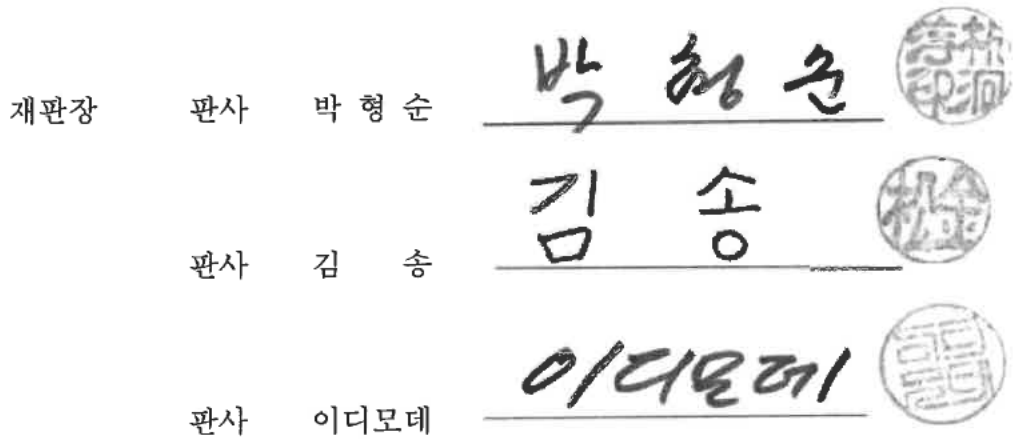 재판장 판사 박 형 순 박 형 순
판사 김 송 김 송
판사 이디모데 이디모데